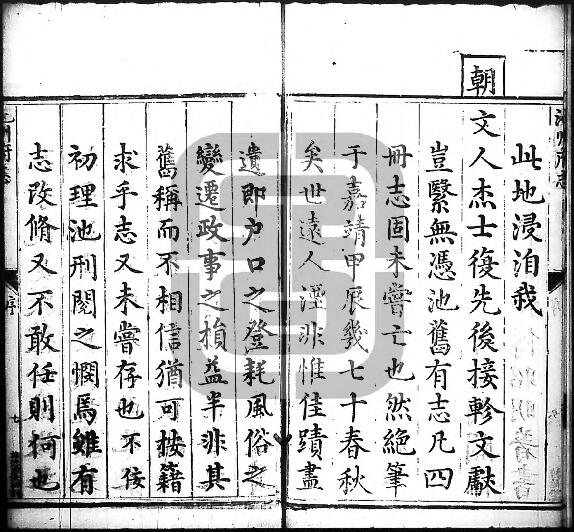 此地浸洎我
朝
文人杰士復先後接軫文獻
豈緊無憑池舊有志凡四
冊志固未嘗亡也然絕筆
于嘉靖甲辰幾七十春秋
矣世遠人湮非惟佳蹟盡
遺即户口之登耗風俗之
變遷政事之損益半非其
舊稱而不相信猶可按籍
求乎志又未嘗存也不佞
初理池刑閱之憫焉雖有
志改脩又不敢任則何也